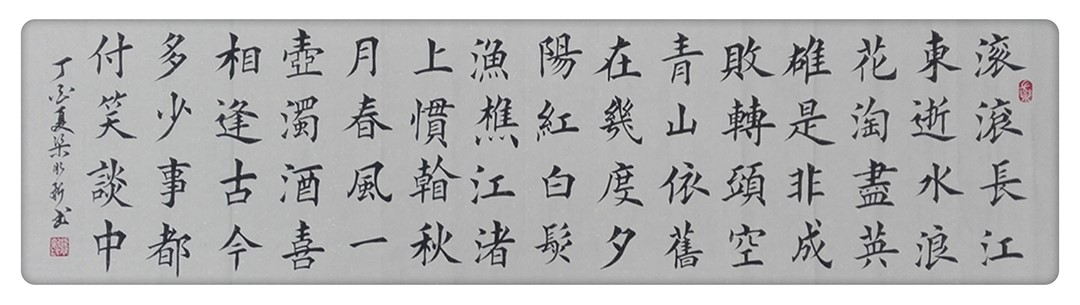 滚滚長江
東逝水浪
花淘盡英
雄是非成
敗轉頭空
青山依舊
在幾度夕
陽紅白髮
漁樵江渚
上慣看秋
月春風一
壺濁酒喜
相逢古今
多少事都
付笑談中
丁酉夏梁